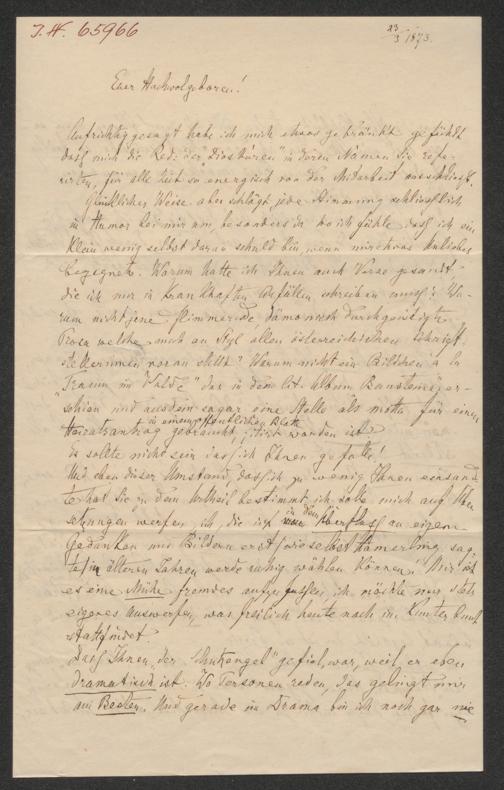 J.N. 65966
23/3 1873.
Euer Hochwolgeboren!
Aufrichtig gesagt habe ich mich etwas gekränkt gefühlt
daß mich die Red: der „Dioskuren" in deren Namen Sie refe-
rirten, für alle Zeit so energisch von der Mitarbeit ausschließt.
Glücklicher Weise aber schlägt jede Stimmung schließlich
in Humor bei mir um, besonders da wo ich fühle daß ich ein
klein wenig selbst daran schuld bin, wenn mir etwas Unliebes
begegnet. Warum hatte ich Ihnen auch Verse gesandt
die ich nur in krankhaften Anfällen schreiben muß? Wa-
rum nicht jene flimmernde dämonisch durchgeistigte
Prosa welche mich an Styl allen österreichischen Schrift-
stellerinnen voran stellt? Warum nicht ein Bildchen à la
„Traum im Walde" das in dem lit. Album Bausteine er-
schien und aus dem sogar eine Stelle als Motto für einen
in einem öffentlichen Blatt
Heiratsantrag gebraucht, citirt worden ist?
Es sollte nicht sein daß ich Ihnen gefalle!
Und eben dieser Umstand, daß ich zu wenig Ihnen einsand-
te hat Sie zu dem Urtheil bestimmt, ich solle mich auf Übe
setzungen werfen, ich, die ich in dem Überfluß an eigenen
Gedanken und Bildern erst (wie selbst Hamerling sag-
te) in älteren Jahren werde ruhig wählen können. Mir ist
es eine Mühe fremdes aufzufassen, ich möchte nur stets
eigenes auswerfen, was freilich heute noch in Kunterbunt
stattfindet.
Daß Ihnen „der Schutzengel" gefiel, war, weil er eben
dramatisch ist. Wo Personen reden, das gelingt mir
am Besten. Und gerade im Drama bin ich noch gar nie